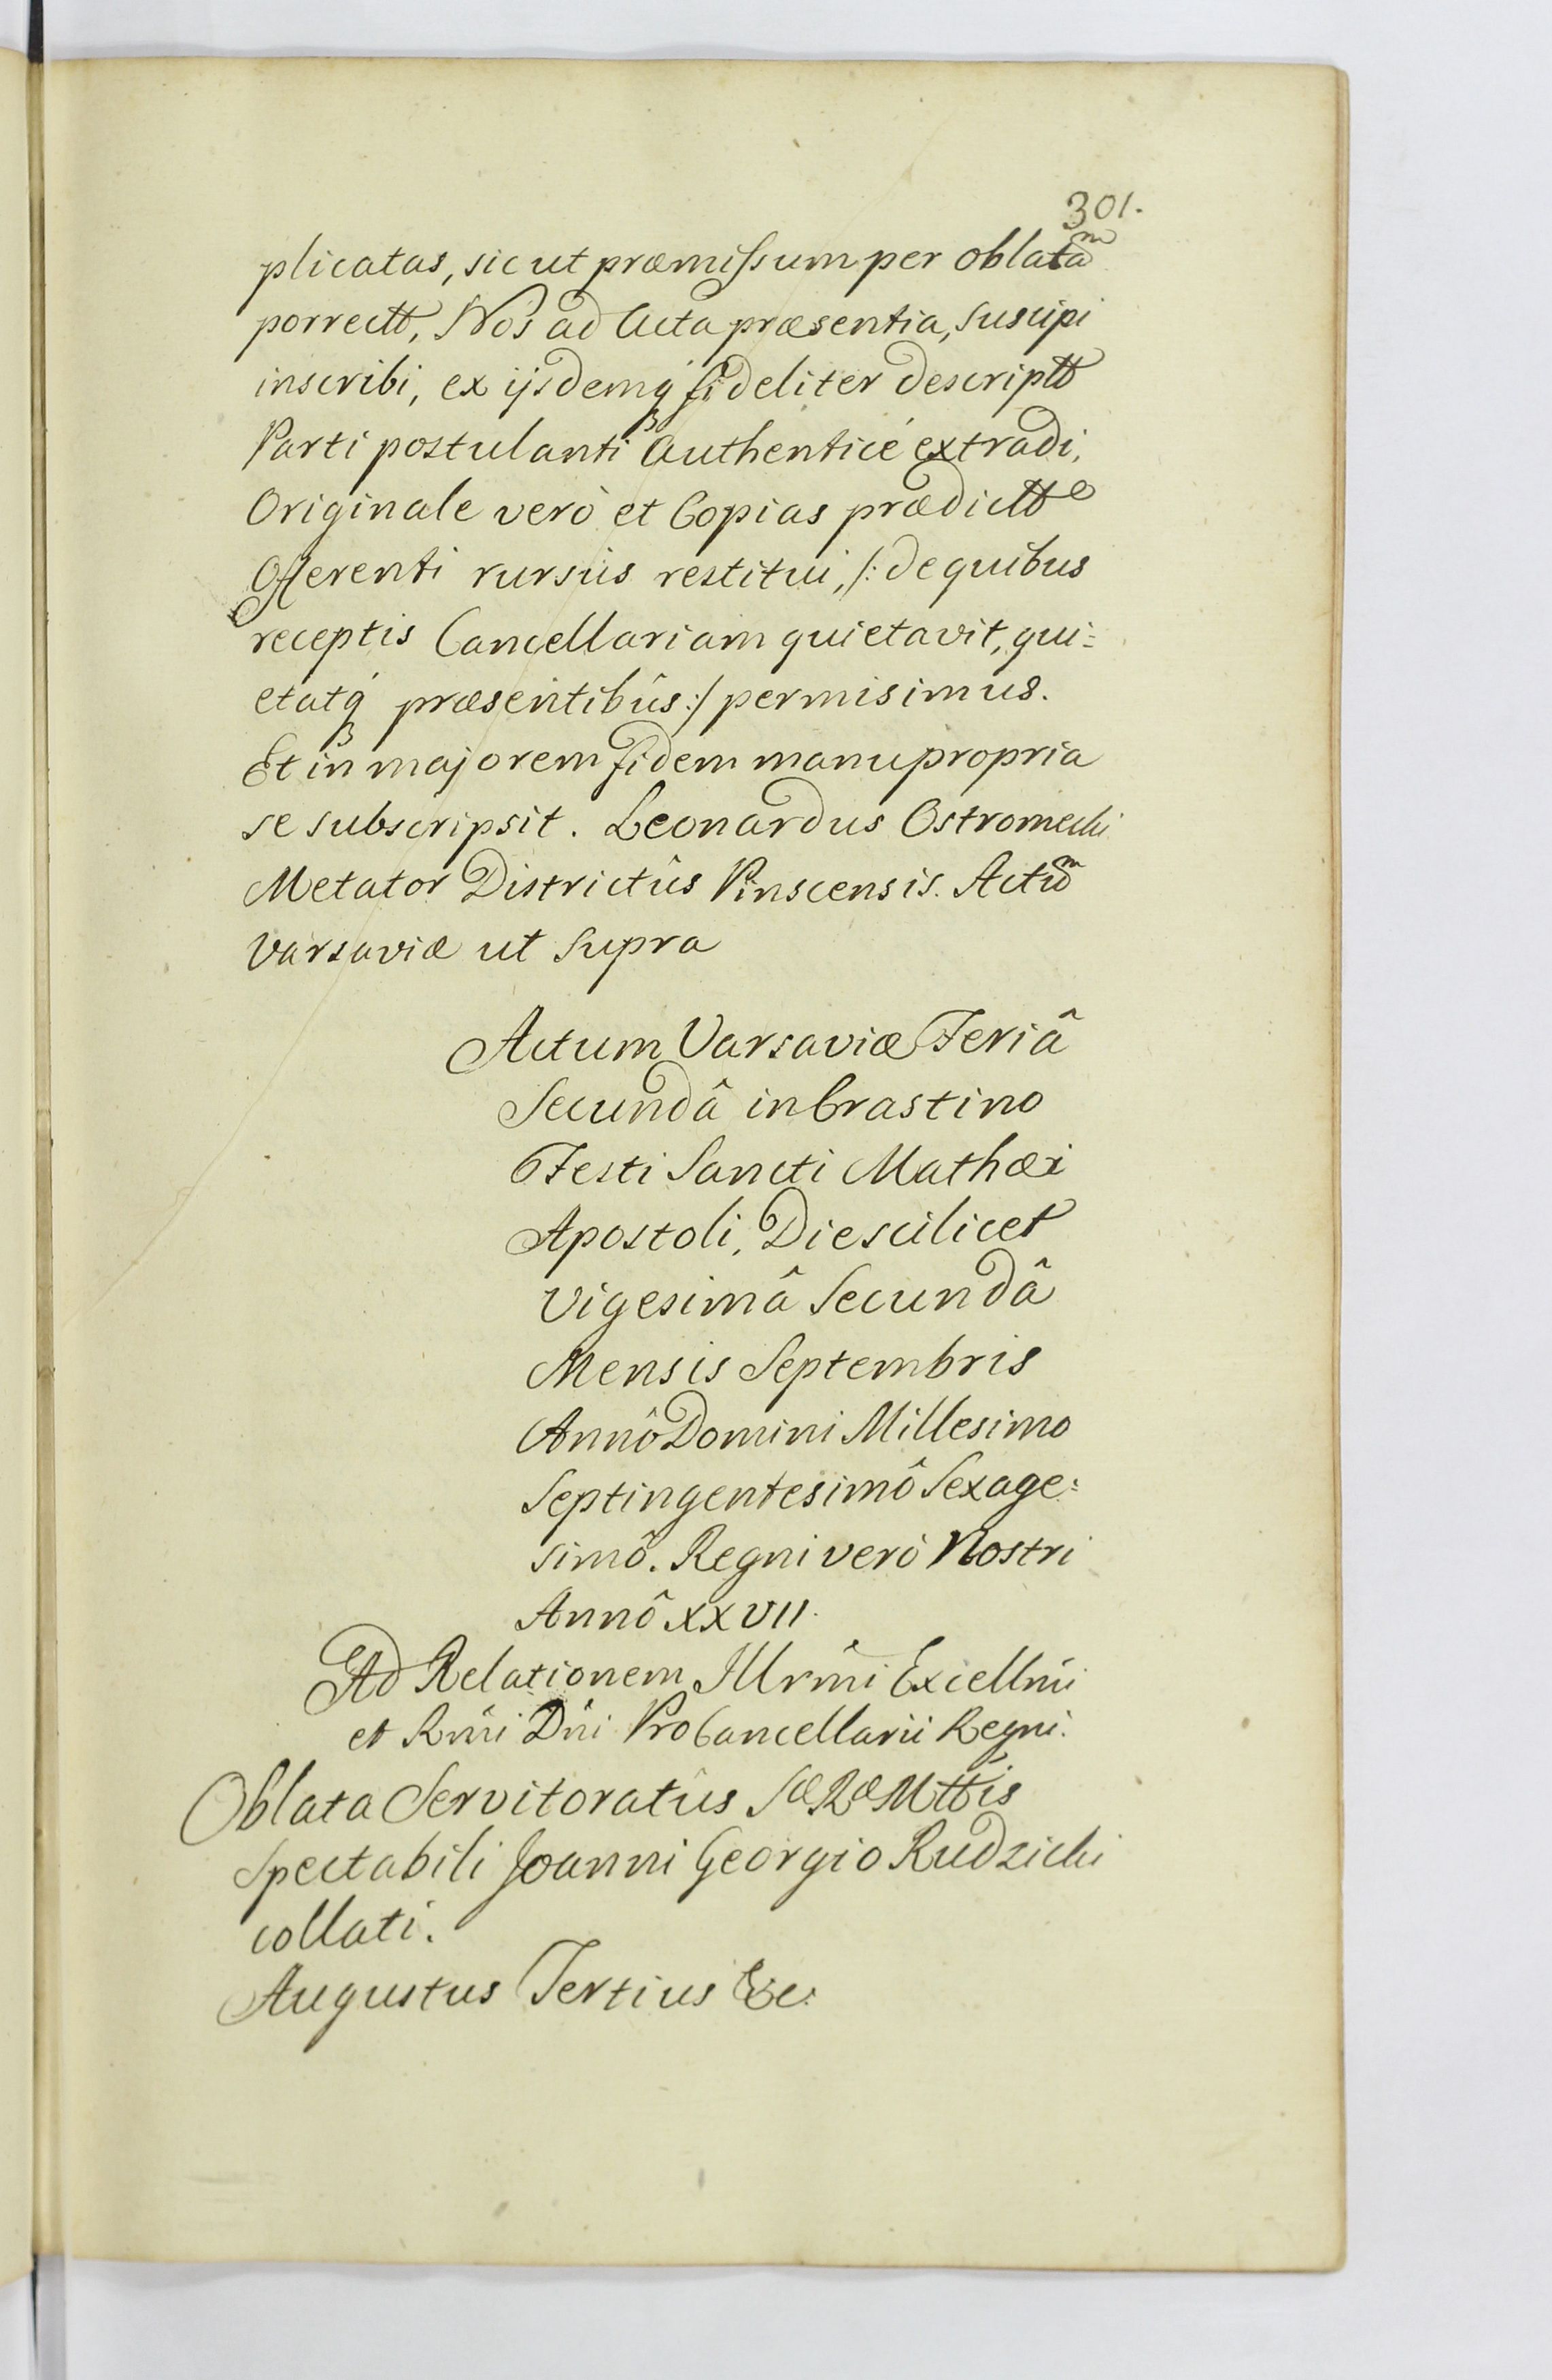 301.
plicatas, sicut præmissum per oblatã^m
porrectt, Nos ad Acta præsentia, suscipi
inscribi, ex ijsdemq́ fideliter descriptt
Parti postulanti Authenticé extradi,
Originale verò et Copias prædictt^e
Offerenti rursùs restitui, /: de quibus
receptis Cancellariam quietavit, qui=
etatq́ præsentibûs :/ permisimus.
Et in majorem fidem manu propria
se subscripsit. Leonardus Ostromecki
Metator Districtûs Pinscensis. Actũ^m
Varsaviæ ut supra
Actum Varsaviæ Feriâ
Secundâ in Crastino
Festi Sancti Mathæi
Apostoli, Die scilicet
Vigesimâ Secundâ
Mensis Septembris
Annô Domini Millesimo
Septingentesimô Sexage=
simô. Regni verò Nostri
Annô XXVII.
Ad Relationem Illrmĩ Excellmĩ
et Rmĩ Dñi ProCancellarii Regni.
Oblata Servitoratûs SæRæMttis
Spectabili Joanni Georgio Rudzicki
collati.
Augustus Tertius &c: